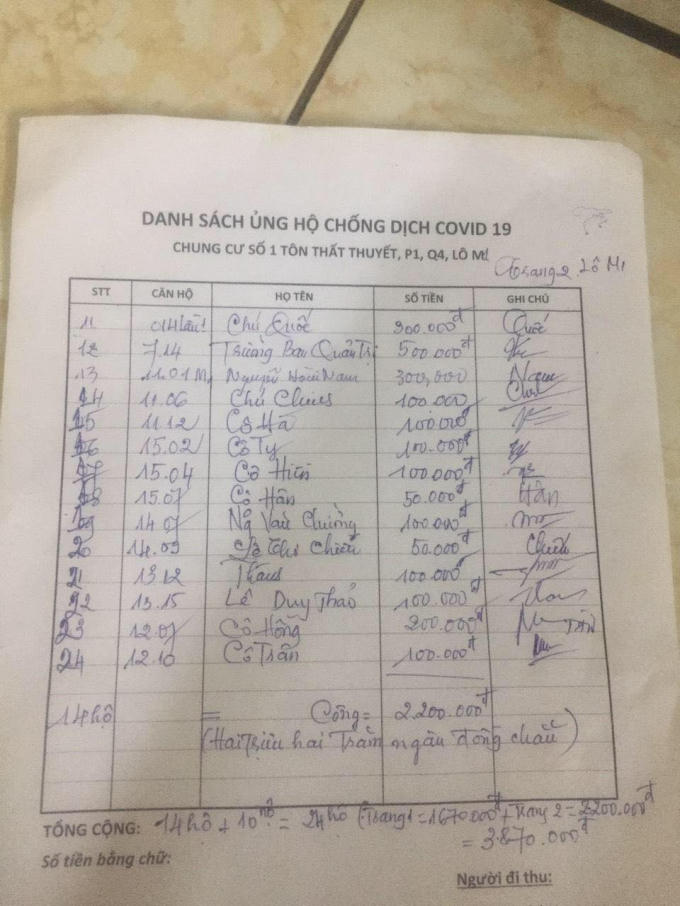 DANH SÁCH ỦNG HỘ CHỐNG DỊCH COVID 19
CHUNG CƯ SỐ 1 TÔN THẤT THUYẾT, P1, Q4, LÔ M1
Trang 2 Lô M1
STT CĂN HỘ HỌ TÊN SỐ TIỀN GHI CHÚ
11 Chú Quốc 300.000đ Quốc
12 7.14 Trưởng Ban Quản Trị 500.000đ
13 11.01 M1 Nguyễn Hoài Nam 300,000 Nam
14 11.06 Chú 100.000
15 11.12 Cô Hà 100.000đ
16 15.02 Cô Ty 100.000đ
17 15.04 Cô Hiền 100.000đ
18 15.07 Cô Hân 50.000đ Hân
19 14.07 Ng Văn Chường 100.000đ
20 14.09 Thị Chiến 50.000đ Chiến
21 13.12 100.000đ
22 13.15 Lê Duy Thảo 100.000đ
23 12.07 Cô Hồng 200.000đ
24 12.10 Cô Trân 100.000đ
14 hộ = Cộng = 2.200.000đ
(Hai triệu hai trăm ngàn đồng chẵn)
TỔNG CỘNG: 14 hộ + 10 hộ = 24 hộ (Trang 1 = 1670.000đ + Trang 2 = 2200.000đ
= 3.870.000đ
Số tiền bằng chữ:
Người đi thu: